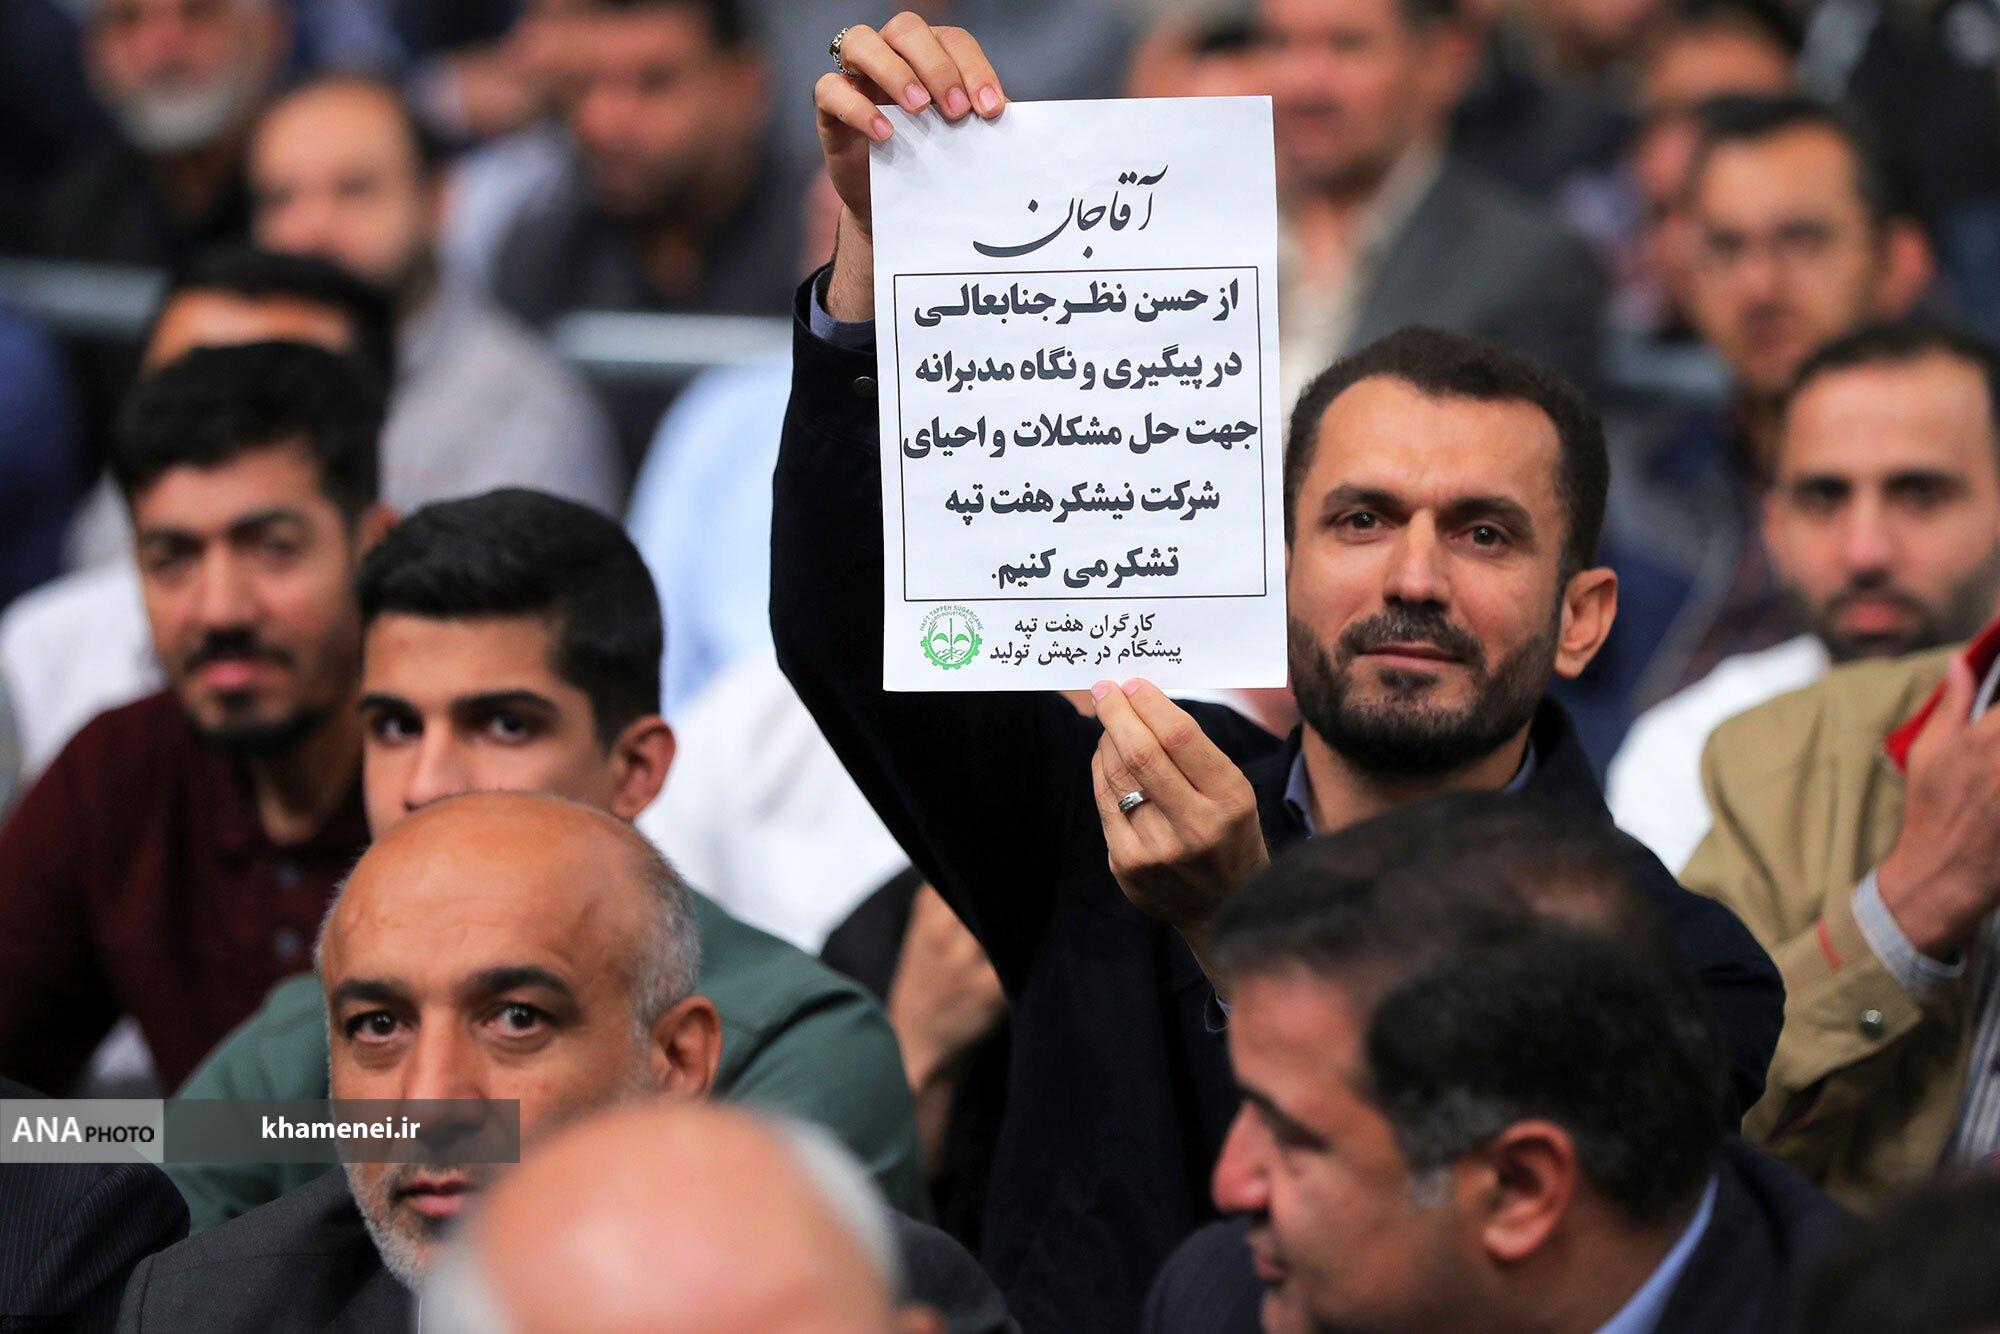 آقاجان
از حسن نظر جنابعالی
در پیگیری و نگاه مدبرانه
جهت حل مشکلات و احیای
شرکت نیشکر هفت تپه
تشکر می کنیم.
کارگران هفت تپه
پیشگام در جهش تولید
HAFT TAPPEH SUGARCANE
ANA PHOTO
khamenei.ir